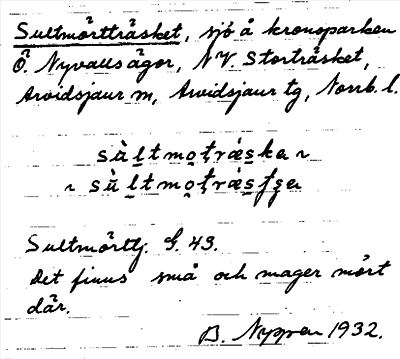 Sultmörtträsket, sjö å kronoparken
Ö. Nyvallsägor, N.V. Storträsket,
Arvidsjaur sn, Arvidsjaur tg, Norrb. l.
Sultmörttj. G. 43.
Det finns små och mager mört
där.
B. Nyman 1932.